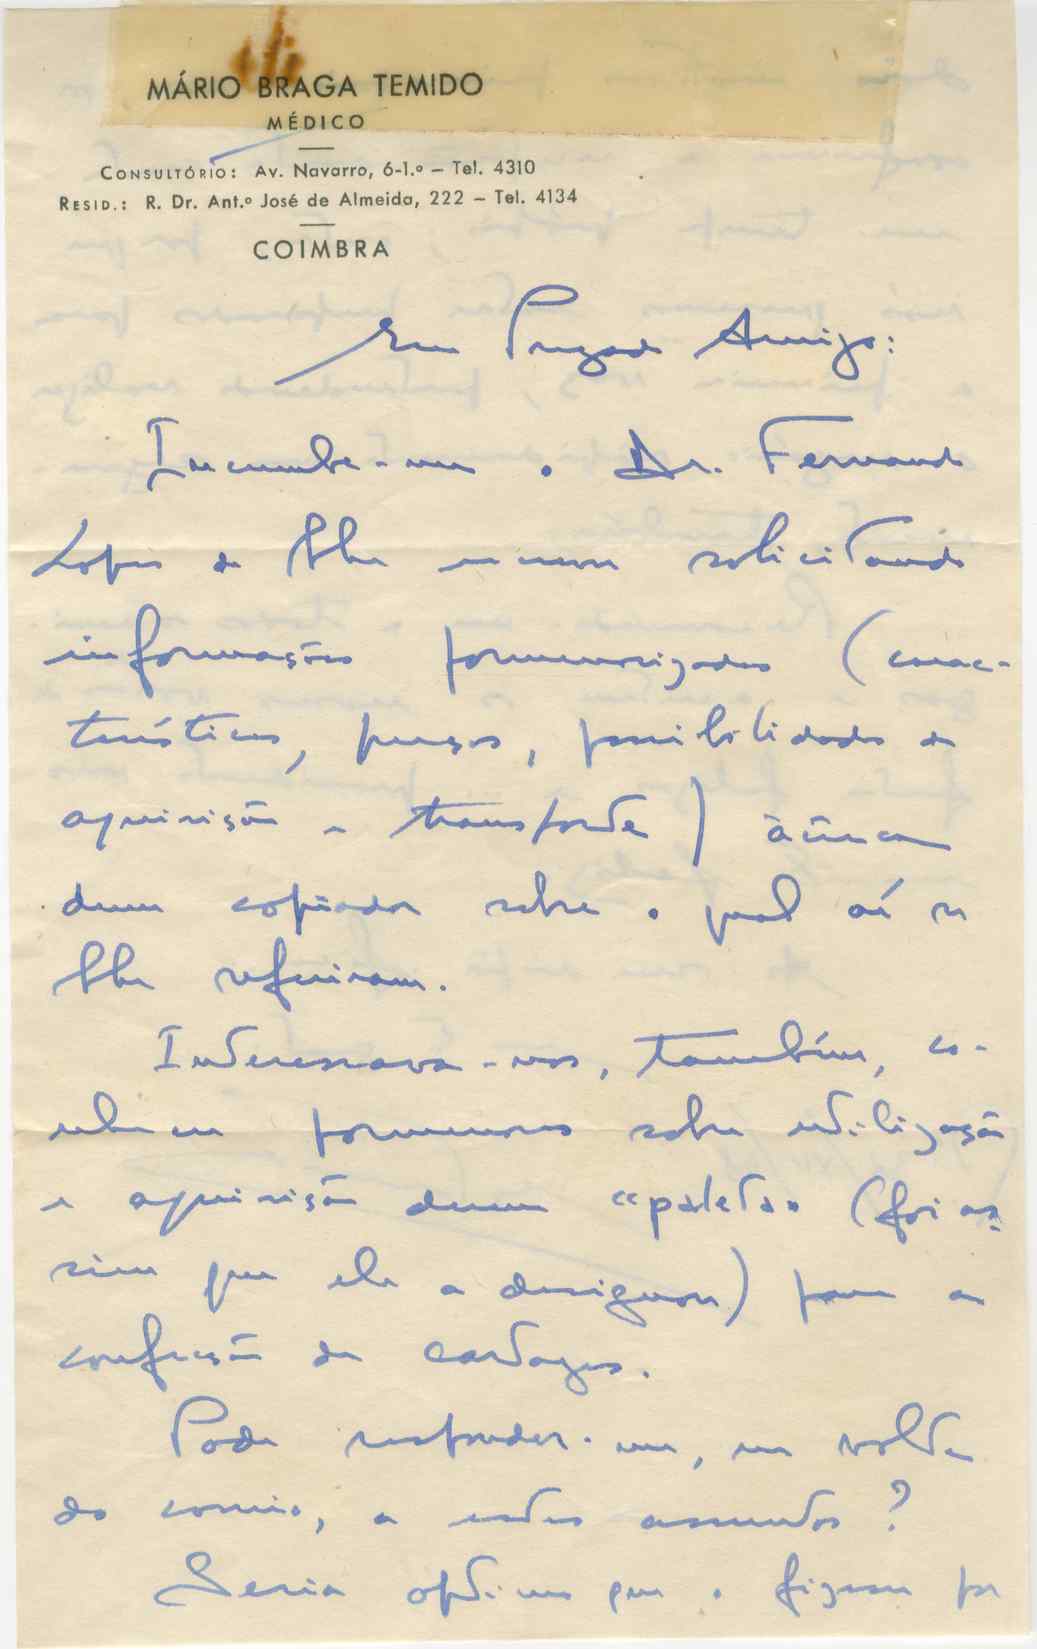 MÁRIO BRAGA TEMIDO
MÉDICO
CONSULTÓRIO: Av. Navarro, 6-1.º – Tel. 4310
RESID.: R. Dr. Ant.º José de Almeida, 222 – Tel. 4134
COIMBRA
Meu Prezado Amigo:
Incumbe-me o Dr. Fernando
Lopes de lhe escrever solicitando
informações pormenorizadas (carac-
terísticas, preços, possibilidades de
aquisição e transporte) àcêrca
dum copiador sobre o qual aí se
lhe referiram.
Interessava-nos, também, co-
nhecer pormenores sobre utilização
e aquisição duma «paleta» (foi as-
sim que ele a designou) para a
confecção de cartazes.
Pode responder-me, na volta
do correio, a estes assuntos?
Seria óptimo que o fizesse por